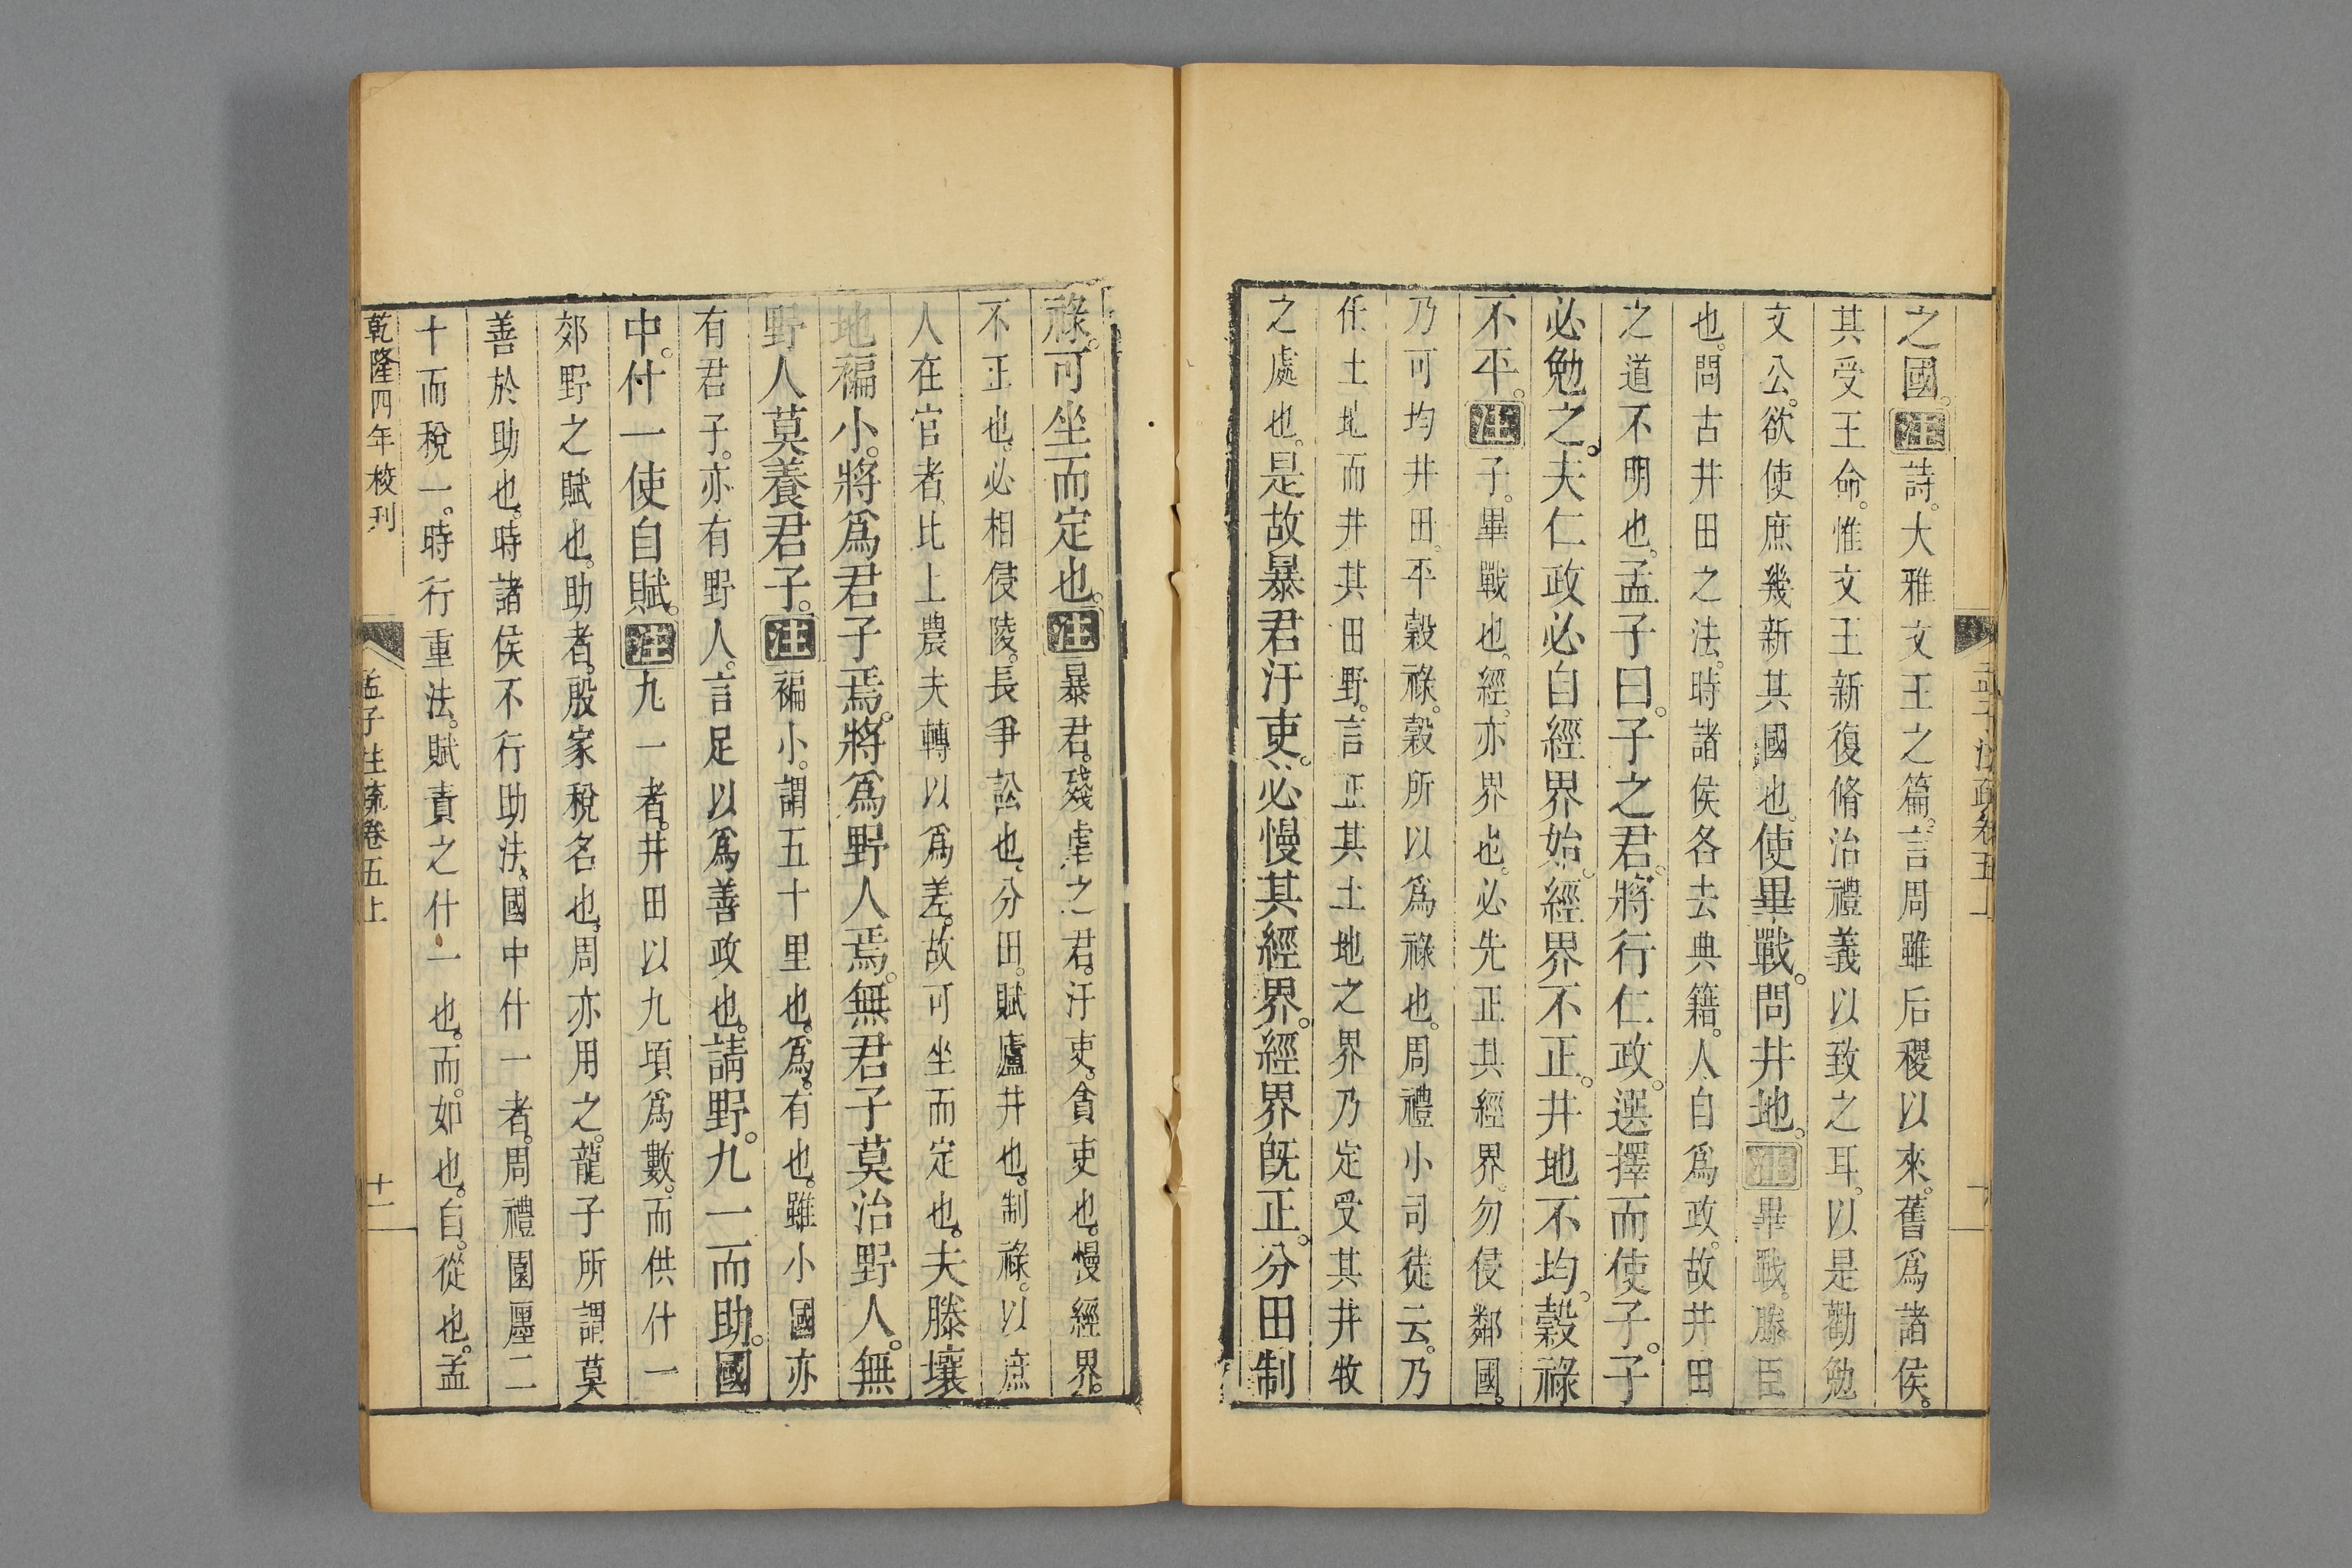 之國。注詩。大雅文王之篇。言周雖后稷以來。舊爲諸侯。
其受王命。惟文王新復脩治禮義以致之耳。以是勸勉
文公。欲使庶幾新其國也。使畢戰。問井地。注畢戰。滕臣
也。問古井田之法。時諸侯各去典籍。人自爲政。故井田
之道不明也。孟子曰。子之君。將行仁政。選擇而使子。子
必勉之。夫仁政必自經界始。經界不正。井地不均。穀祿
不平。注子。畢戰也。經。亦界也。必先正其經界。勿侵鄰國。
乃可均井田。平穀祿。穀所以爲祿也。周禮小司徒云。乃
任土地而井其田野。言正其土地之界乃定受其井牧
之處也。是故暴君汙吏。必慢其經界。經界旣正。分田制
祿。可坐而定也。注暴君。殘虐之君。汙吏。貪吏也。慢經界。
不正也。必相侵陵。長爭訟也。分田。賦廬井也。制祿。以庶
人在官者。比上農夫轉以爲差。故可坐而定也。夫滕壤
地褊小。將爲君子焉。將爲野人焉。無君子莫治野人。無
野人莫養君子。注褊小。謂五十里也。爲。有也。雖小國亦
有君子。亦有野人。言足以爲善政也。請野。九一而助。國
中。什一使自賦。注九一者。井田以九頃爲數。而供什一
郊野之賦也。助者。殷家稅名也。周亦用之。龍子所謂莫
善於助也。時諸侯不行助法。國中什一者。周禮園廛二
十而稅一。時行重法。賦責之什一也。而。如也。自。從也。孟
乾隆四年校刊
孟子注疏卷五上
十二